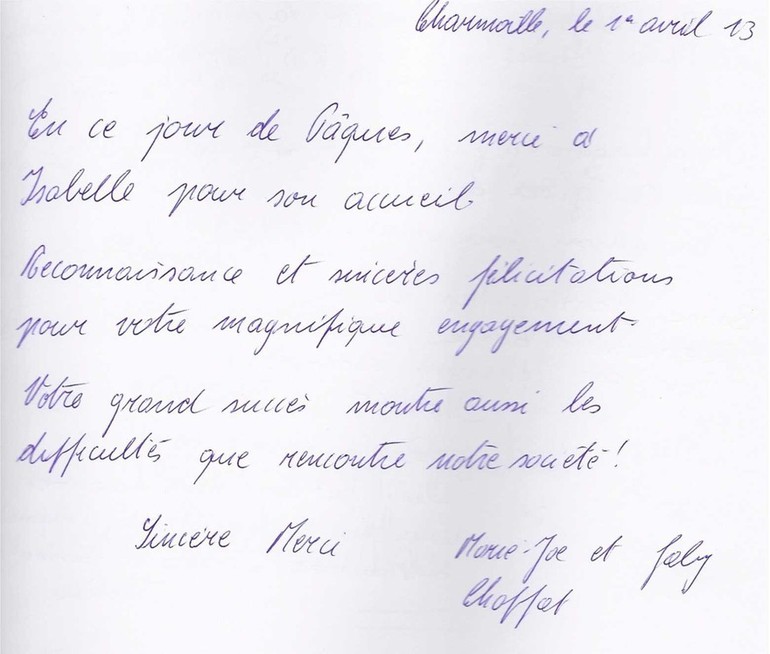 Charmoille, le 1er avril 13
En ce jour de Pâques, merci à
Isabelle pour son accueil
Reconnaissance et sincères félicitations
pour votre magnifique engagement
Votre grand succès montre aussi les
difficultés que rencontre notre société!
Sincère Merci
Marie-Joe et Gaby
Choffat